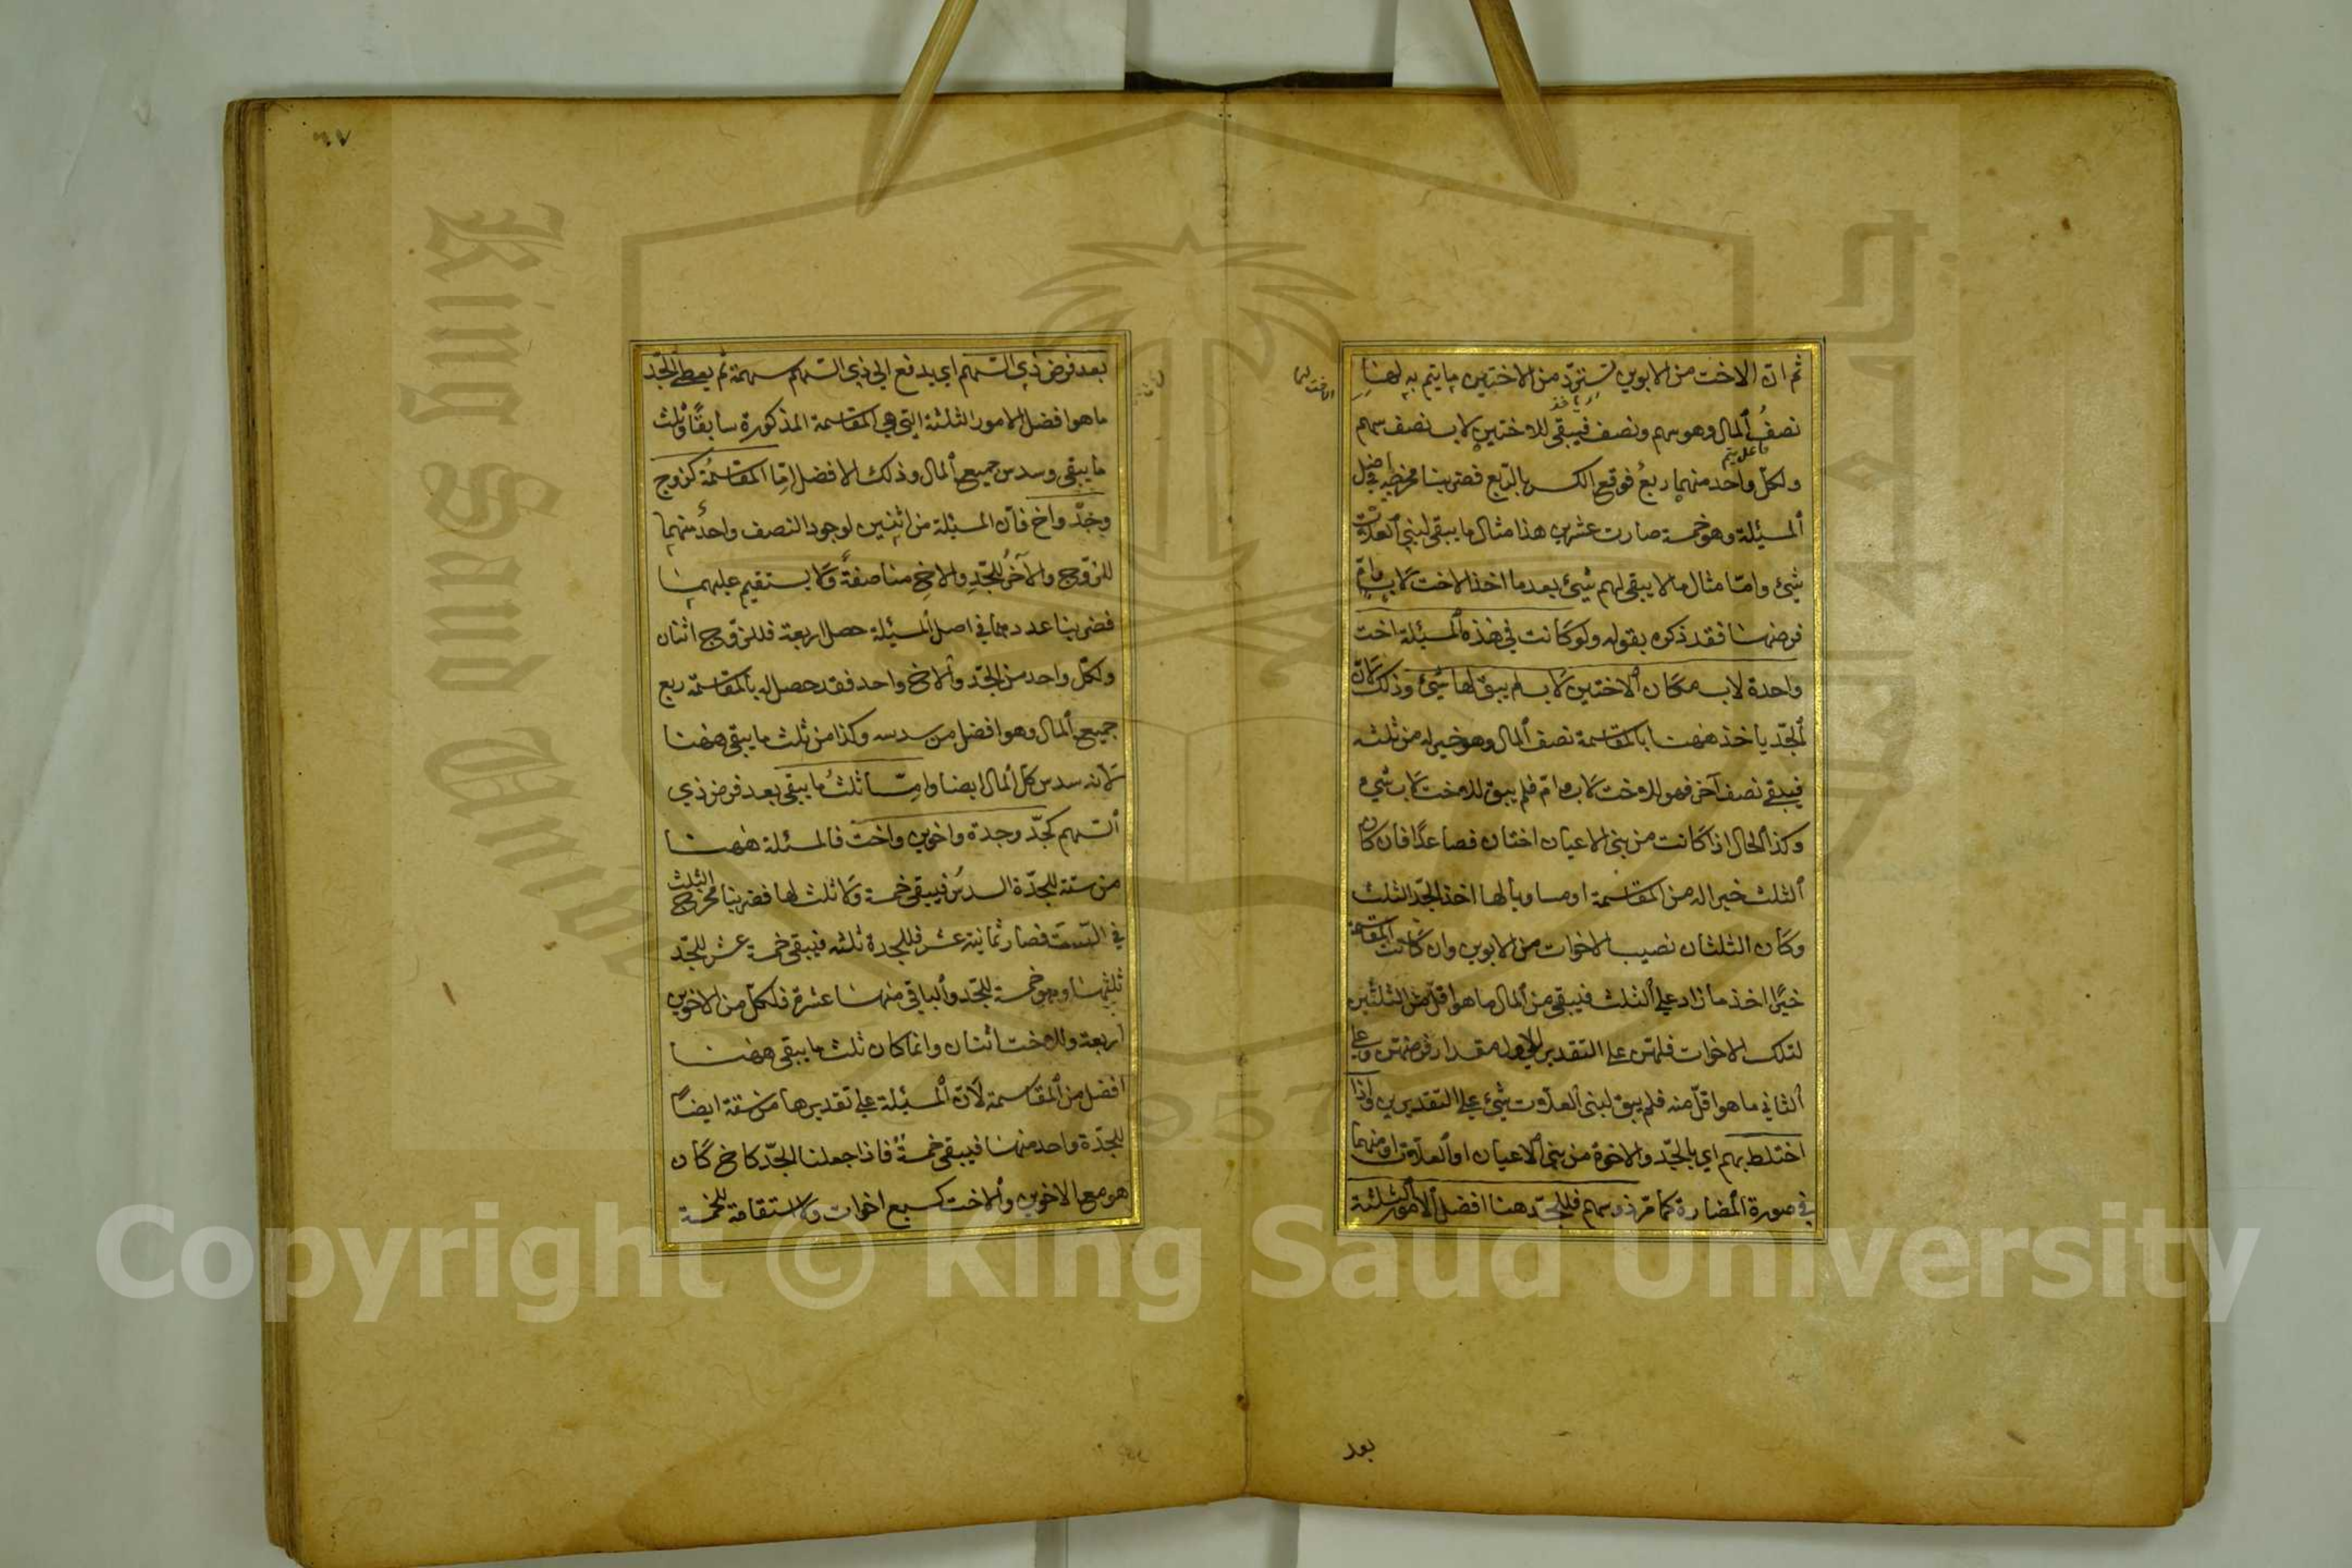 ثم ان الاخت من الابوين تسترد من الاختين ما يتم به لها
نصفُ المال وهو سهم ونصف فيبقى للاختين لاب نصف سهم
ولكل واحد منهما ربعُ فوقع الكسر بالربع فضربنا مخرجه في اصل
المسئلة وهو خمسة صارت عشرين هذا مثال ما يبقى لبني العلات
شيئ واما مثال ما لا يبقى لهم شيئ بعد ما اخذ الاخت لاب وامّ
فرضها فقد ذكره بقوله ولو كانت في هذه المسئلة اخت
واحدة لاب مكان الاختين لاب لم يبق لها شيئ وذلك لانّ
الجدّ يأخذ ههنا بالمقاسمة نصف المال وهو خير له من ثلثه
فيبقى نصف آخر فهو للاخت لاب وامّ فلم يبق للاخت لاب شيء
وكذا الحال اذا كانت من بني الاعيان اختان فصاعدًا فان كان
الثلث خيرا له من المقاسمة او مساويا لها اخذ الجدّ الثلث
وكان الثلثان نصيب الاخوات من الابوين وان كانت المقاسمة
خيرًا اخذ ما زاد على الثلث فيبقى من المال ما هو اقلّ من الثلثين
لتلك الاخوات فلهنّ على التقدير الاول مقدار فرضهنّ وعلى
الثاني ما هو اقلّ منه فلم يبق لبني العلات شيئ على التقديرين واذا
اختلط بهم اي بالجدّ والاخوة من بني الاعيان او العلات او منهما
في صورة المضارة كما مرّ ذو سهم فللجدّ هنا افضل الامور الثلثة
بعد
٦٧
بعد فرض ذي السهم اي يدفع الى ذي السهم سهمه ثم يعطى الجدّ
ما هو افضل الامور الثلثة التي هي المقاسمة المذكورة سابقًا وثلث
ما يبقى وسدس جميع المال وذلك الافضل امّا المقاسمةُ كزوج
وجدّ واخ فان المسئلة من اثنين لوجود النصف واحدُ منهما
للزوج والآخرُ للجدِّ والاخِ مناصفةً ولا يستقيم عليهما
فضربنا عددهما في اصل المسئلة حصل اربعة فللزّوج اثنان
ولكلّ واحد من الجدّ والاخ واحد فقد حصل له بالمقاسمة ربع
جميع المال وهو افضل من سدسه وكذا من ثلث ما يبقى ههنا
لانه سدس كل المال ايضا وامّا ثلثُ ما يبقى بعد فرض ذي
السهم كجدّ وجدة واخوين واخت فالمسئلة ههنا
من ستة للجدّة السدسُ فيبقى خمسة ولا ثلث لها فضربنا مخرج الثلث
في الستة فصار ثمانية عشر فللجدة ثلثه فيبقى خمسة عشر للجدّ
ثلثها وهو خمسة للجدّ والباقي منها عشرة فلكلّ من الاخوين
اربعة وللاخت اثنان وانما كان ثلث ما يبقى ههنا
افضل من المقاسمة لانّ المسئلة على تقديرها من ستة ايضاً
للجدّة واحد منها فيبقى خمسةُ فاذا جعلنا الجدّ كاخ كان
هو مع الاخوين والاخت كسبع اخوات ولا استقامة للخمسة